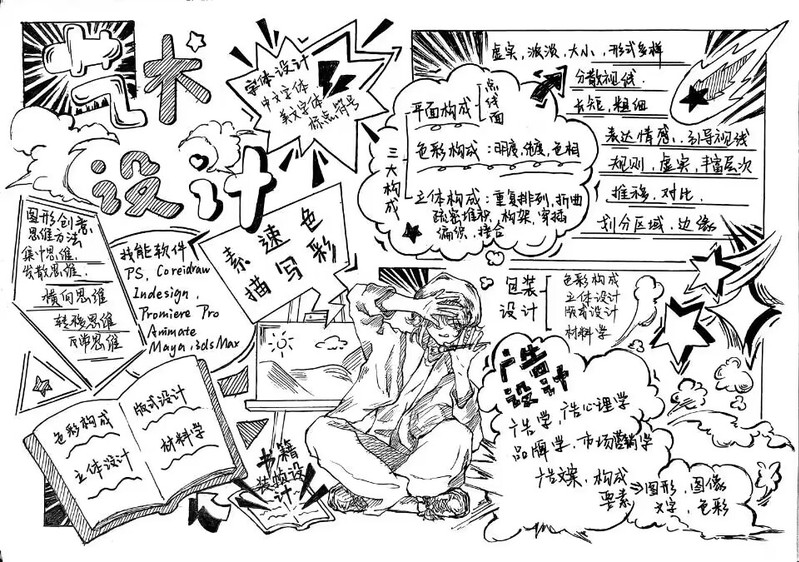 艺术
设计
字体设计
中文字体
英文字体
标点符号
三大构成
平面构成
点
线
面
色彩构成:明度,纯度,色相
立体构成:重复排列,折曲
疏密堆积,构架,穿插
编织,接合
虚实,浓淡,大小,形式多样
分散视线.
长短,粗细
表达情感,引导视线
规则,虚实,丰富层次
推移,对比.
划分区域,边缘
图形创意,
思维方法
集中思维,
发散思维.
横向思维
转移思维
反常思维
技能软件
PS, Coreidraw
Indesign,
Promiere Pro
Animate
Maya,3dsMax
素描
速写
色彩
包装
设计
色彩构成
立体设计
版式设计
材料学
广告
设计
广告学,广告心理学
品牌学,市场营销学
广告文案,构成
要素⇒图形,图像
文字,色彩
色彩构成
立体设计
版式设计
材料学
书籍
装帧设
计